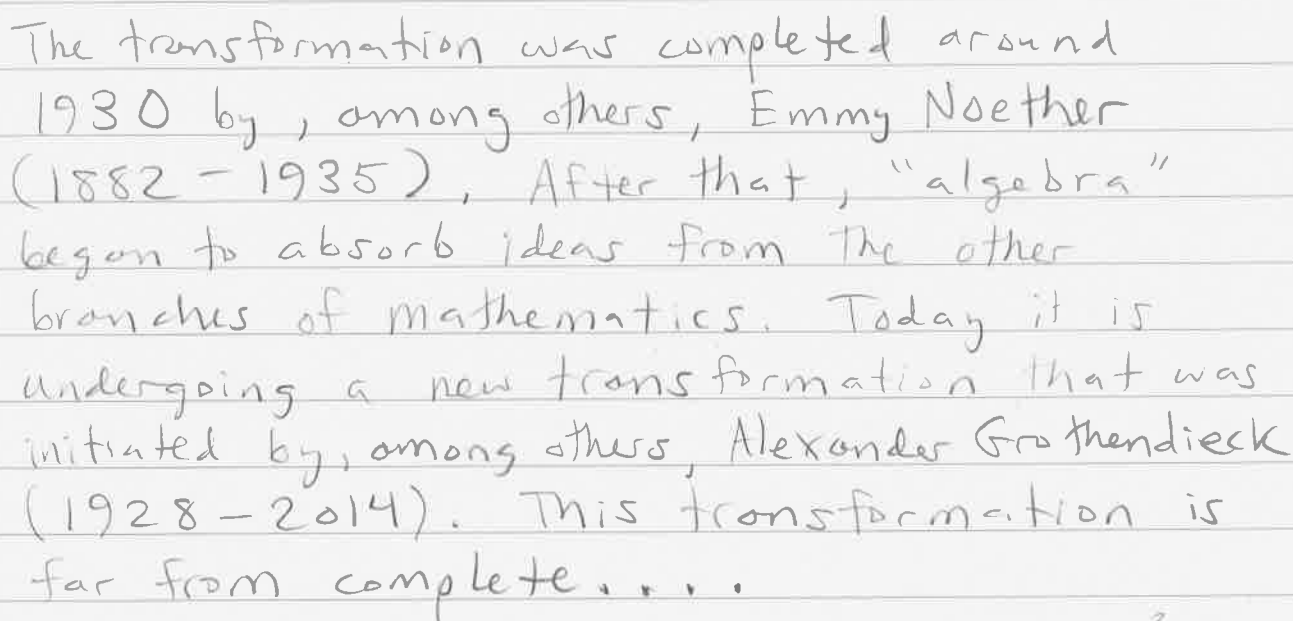 The transformation was completed around
1930 by, among others, Emmy Noether
(1882 - 1935). After that, "algebra"
began to absorb ideas from the other
branches of mathematics. Today it is
undergoing a new transformation that was
initiated by, among others, Alexander Grothendieck
(1928 - 2014). This transformation is
far from complete....